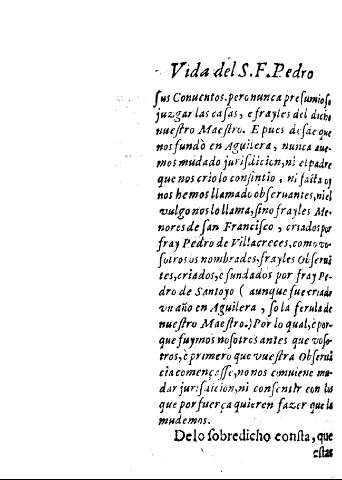 Vida del S. F. Pedro
sus Conuentos, pero nunca presumio se
juzgar las casas, e frayles del dicho
nuestro Maestro. E pues desde que
nos fundò en Aguilera, nunca aue-
mos mudado jurisdicion, ni el padre
que nos crio lo consintio, ni fasta oy
nos hemos llamado obseruantes, ni el
vulgo nos lo llama, sino frayles Me-
nores de san Francisco, criados por
fray Pedro de Villacreces, como vo-
sotros os nombrades, frayles Obserua-
tes, criados, e fundados por fray Pe-
dro de Santoyo (aunque fue criado
vn año en Aguilera, so la ferula de
nuestro Maestro.) Por lo qual, e por-
que fuymos nosotros antes que voso-
tros, è primero que vuestra Obserua
cia començasse, no nos conuiene mu-
dar jurisdicion, ni consentir con los
que por fuerça quieren fazer que la
mudemos.
De lo sobredicho consta, que
estas